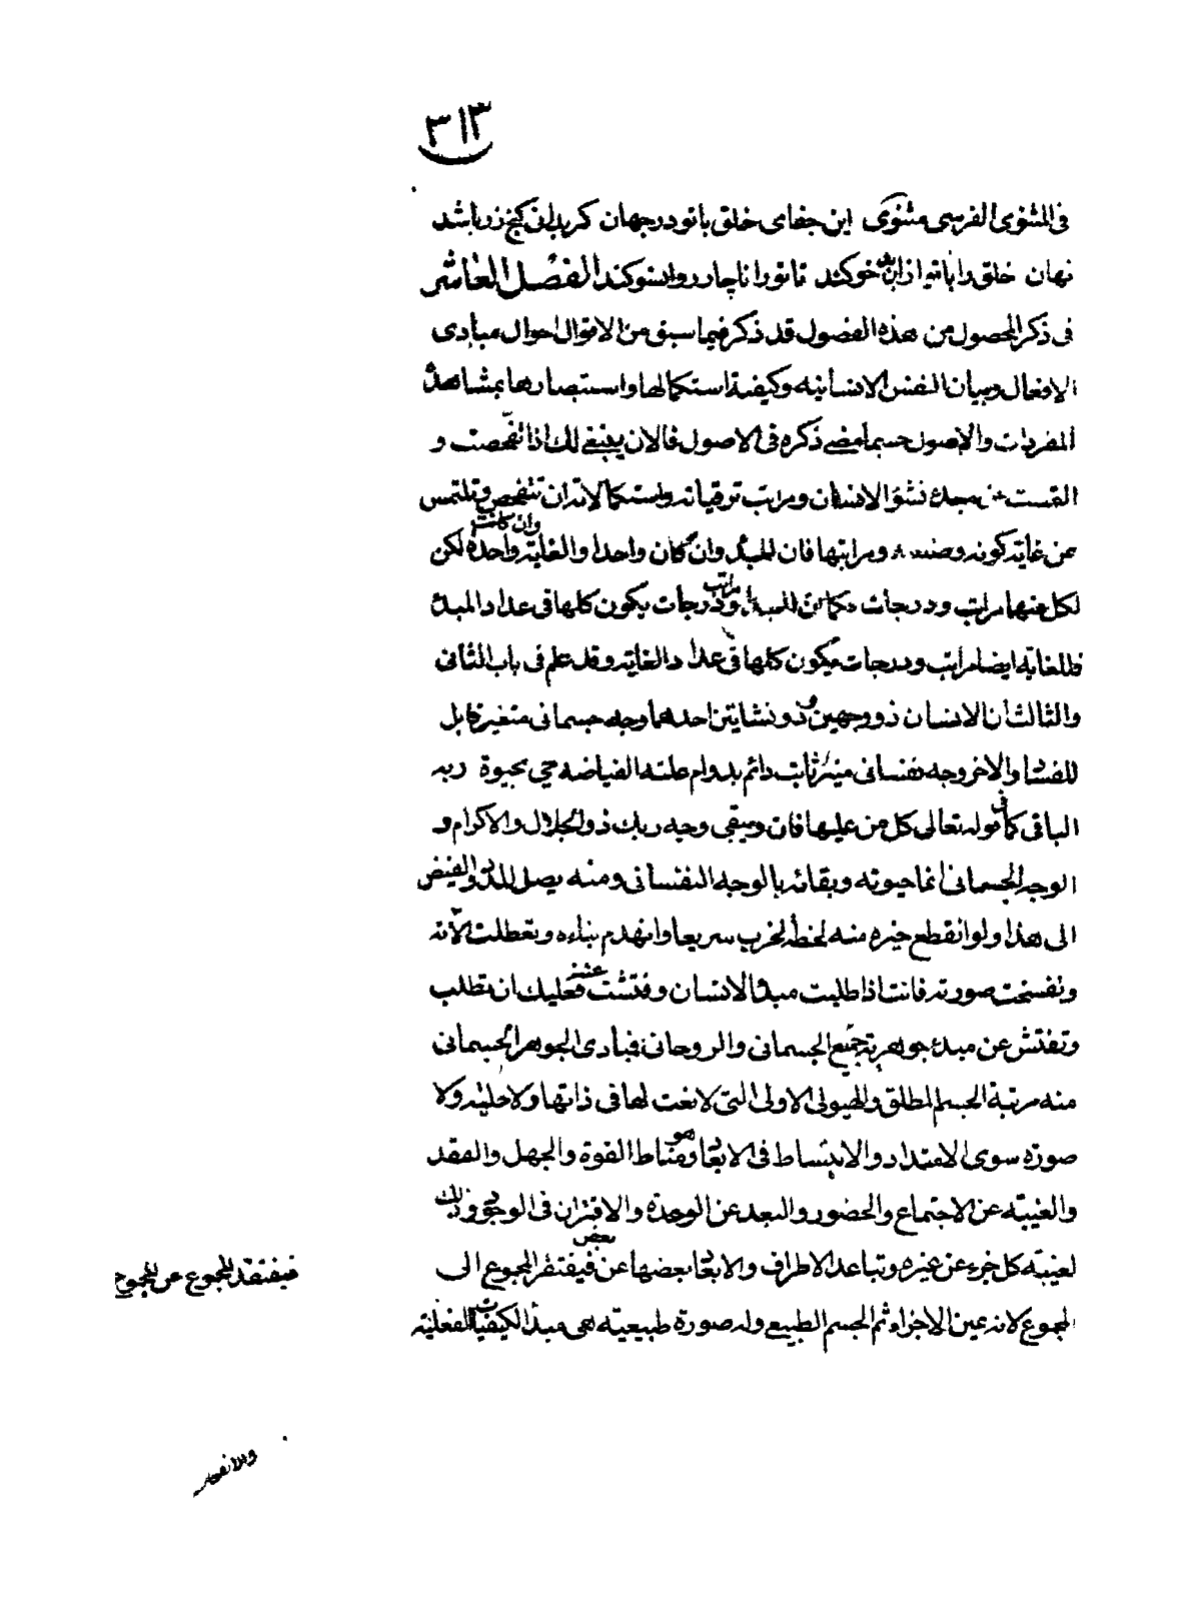 ٣١٣
فى المثنوى الفرسى مثنوى این جفاى خلق با تو در جهان کر بدانى کنج زر باشد
نهان خلق را با تو از این خو کند تا تو را ناچار رو انسو کند الفصل العاشر
فى ذكر المحصول من هذه الفصول قد ذكر فيما سبق من الاقوال احوال مبادى
الافعال وبيان النفس الانسانيه وكيفية استكمالها واستبصارها بمشاهدة
المفردات والاصول حسبما مضى ذكره فى الاصول فالان ينبغى لك اذا تفحصت و
التمست عن مبدء نشؤ الانسان ومراتب ترقياته واستكمالاته ان تتفحص وتلتمس
عن غاية كونه ومراتبها فان المبدء وان كان واحدا والغاية وان كانت واحدة لكن
لكل منها مراتب ودرجات فكما ان للمبدء مراتب ودرجات يكون كلها فى عداد المبدء
فللغاية ايضا مراتب ودرجات يكون كلها فى عداد الغاية وقد علم فى باب الثانى
والثالث ان الانسان ذو وجهين وذو نشايتين احدهما وجه جسمانى متغير قابل
للفساد والاخر وجه نفسانى ثابت دائم بدوام علته الفياضه حى بحيوة ربه
الباقى كما فى قوله تعالى كل من عليها فان ويبقى وجه ربك ذو الجلال والاكرام و
الوجه الجسمانى انما حيوته وبقائه بالوجه النفسانى ومنه يصل المدد والفيض
الى هذا ولو انقطع خيره منه لحظة لخرب سريعا وانهدم بناءه وتعطلت آلاته
وتفسخت صورته فانت اذا طلبت مبدء الانسان وفتشت عنه فعليك ان تطلب
وتفتش عن مبدء جوهرية جميع الجسمانى والروحانى فمبادى الجوهر الجسمانى
منه مرتبة الجسم المطلق والهيولى الاولى التى لا نعت لها فى ذاتها ولا حلية ولا
صورة سوى الامتداد والانبساط فى الابعاد وهو مناط القوة والجهل والفقد
والغيبة عن الاجتماع والحضور والبعد عن الوحدة والاقتران فى الوجود وذلك
لغيبة كل جزء عن غيره وتباعد الاطراف والابعاد بعضها عن بعض فيفتقر المجموع الى
المجموع لانه عين الاجزاء ثم الجسم الطبيعى وله صورة طبيعية هى مبدء الكيفيات الفعلية
فيفتقد المجموع عن المجموع